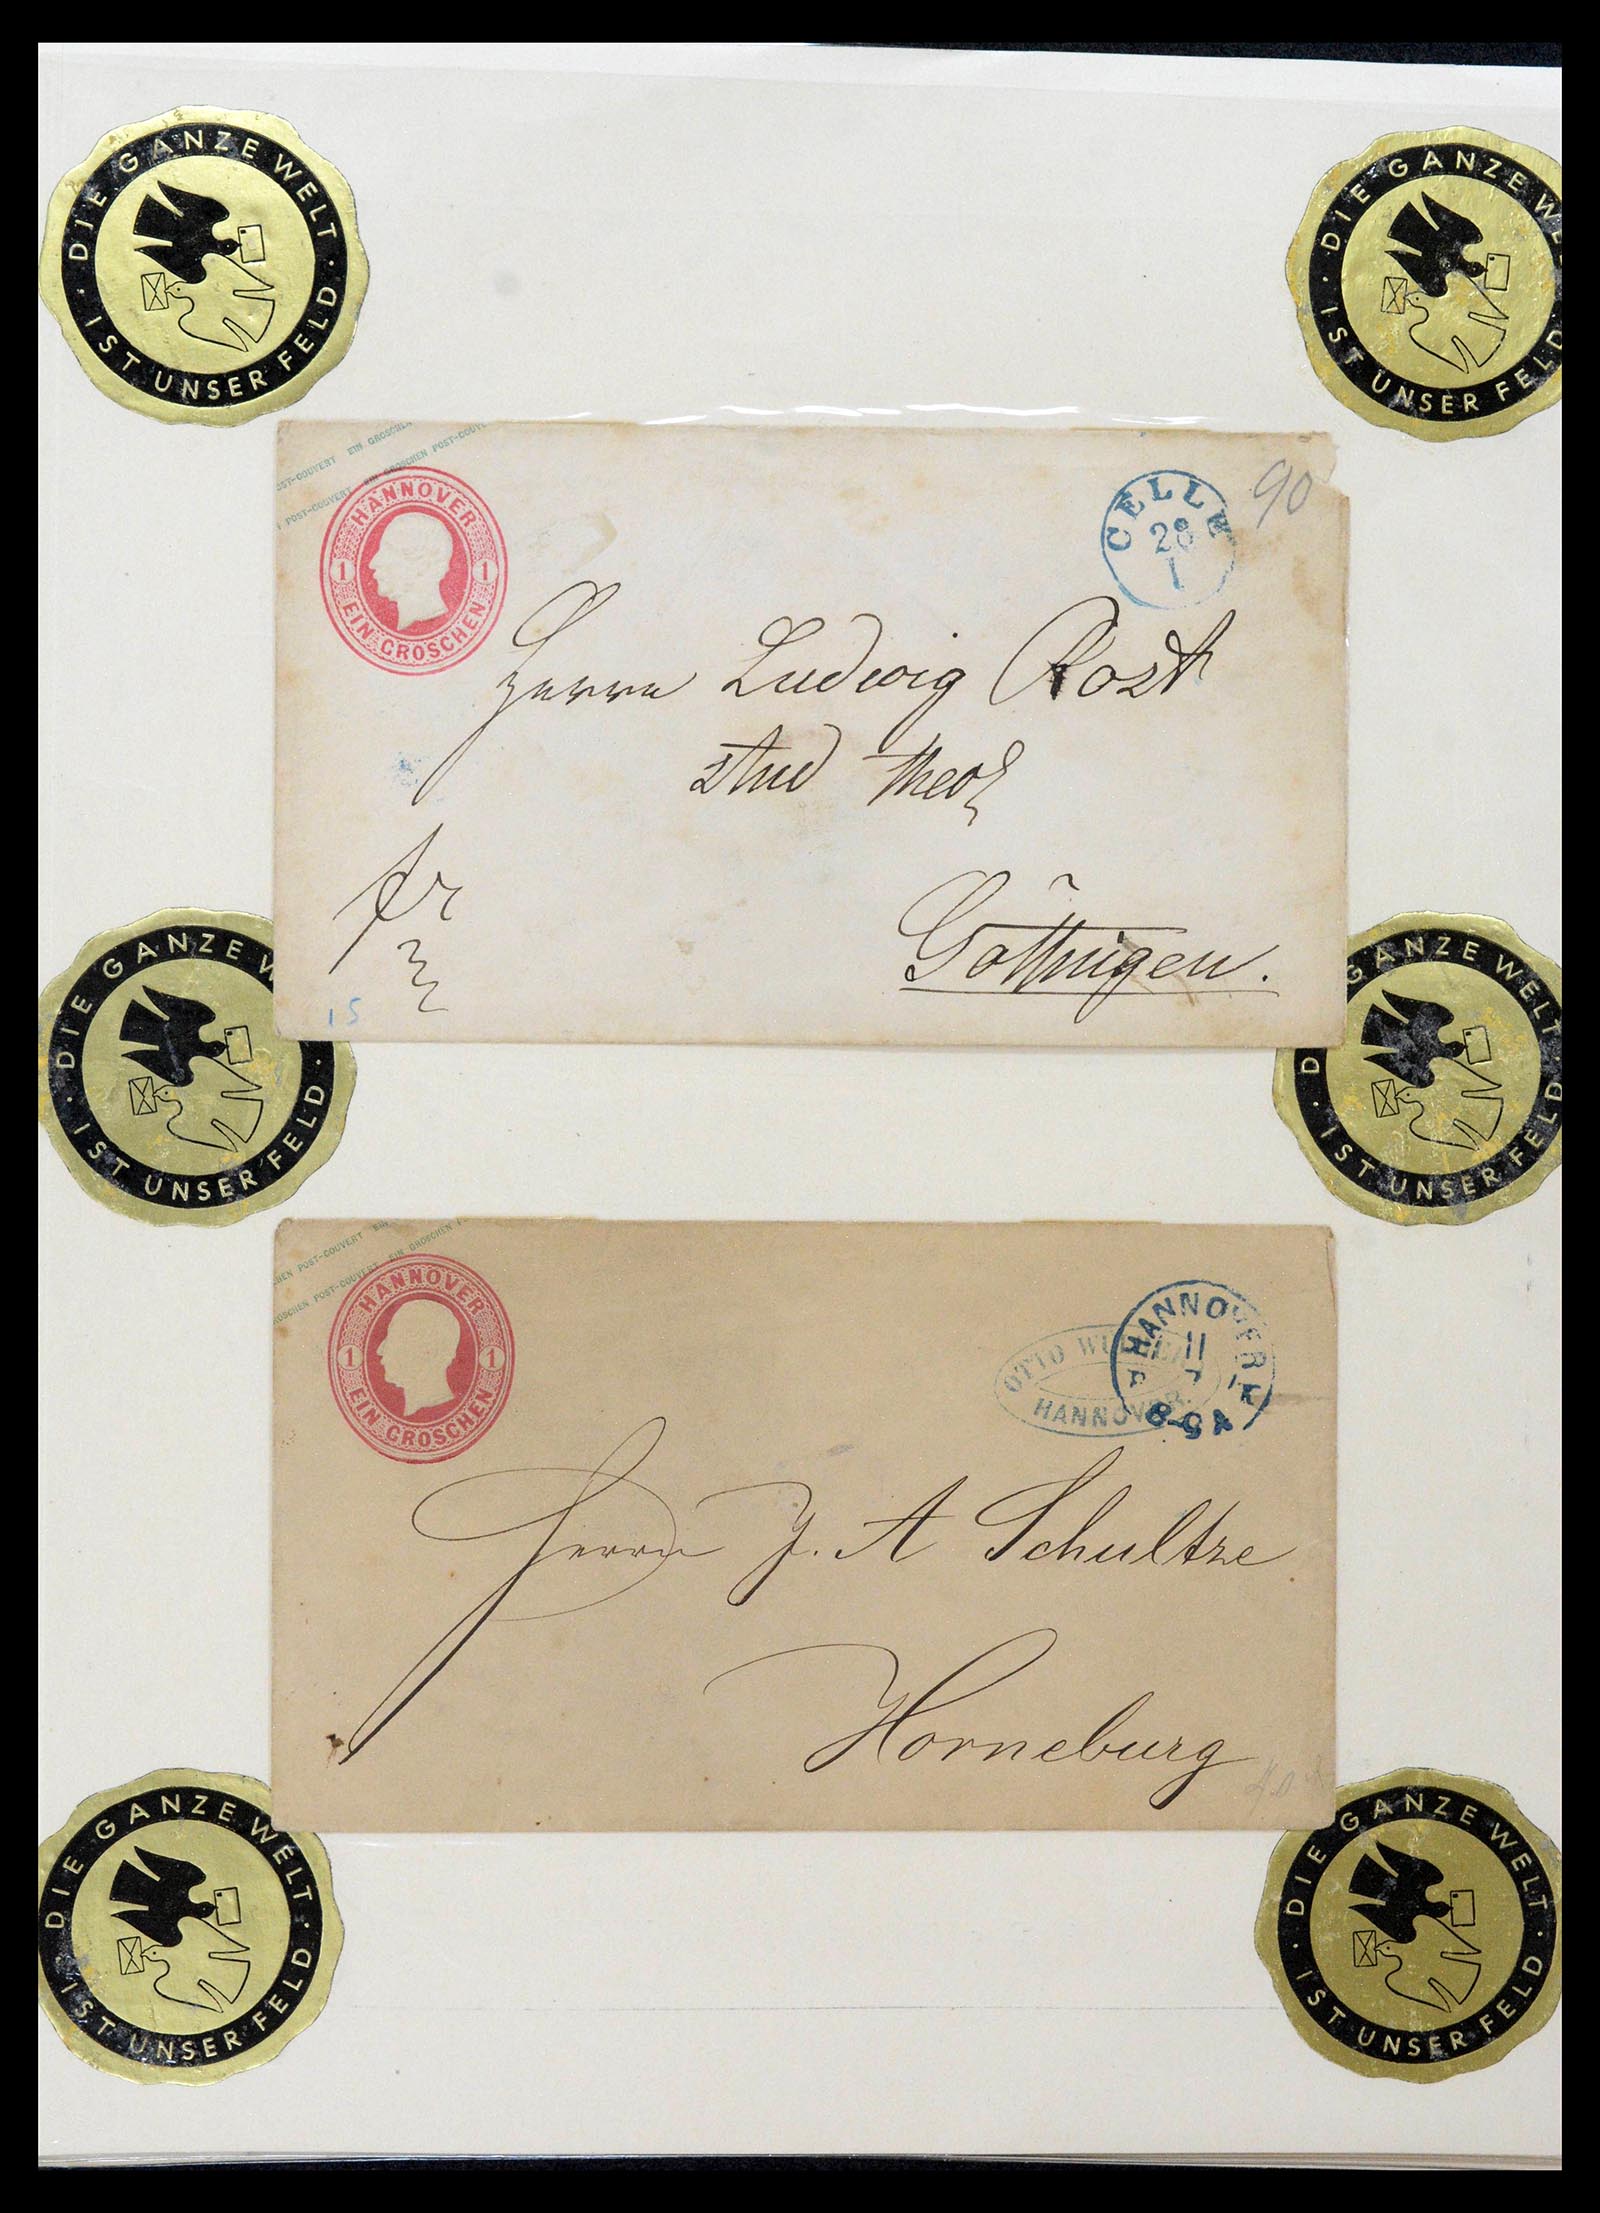 · DIE GANZE WELT · IST UNSER FELD
· DIE GANZE WE · IST UNSER FELD
OST-COUVERT EIN GROSCHEN
POST-COUVERT EIN GROSCHEN POST-COUV
HANNOVER
1 1
EIN GROSCHEN
CELLE
28
1
90
Herrn Ludwig Rost
stud theol
fr
Göttingen.
15
· DIE GANZE W · IST UNSER FELD ·
D GANZE WELT · IST UNSER FELD
EN POST-COUVERT EIN
ROSCHEN POST-COUVERT EIN GROSCHEN P
HANNOVER
1 1
EIN GROSCHEN
OTTO
HANNOVER
HANNOVER
11
Herrn J. A Schultze
Horneburg
· DIE GANZE WELT · IST UNSER FELD
· DIE GANZE WELT · IST UNSER FELD